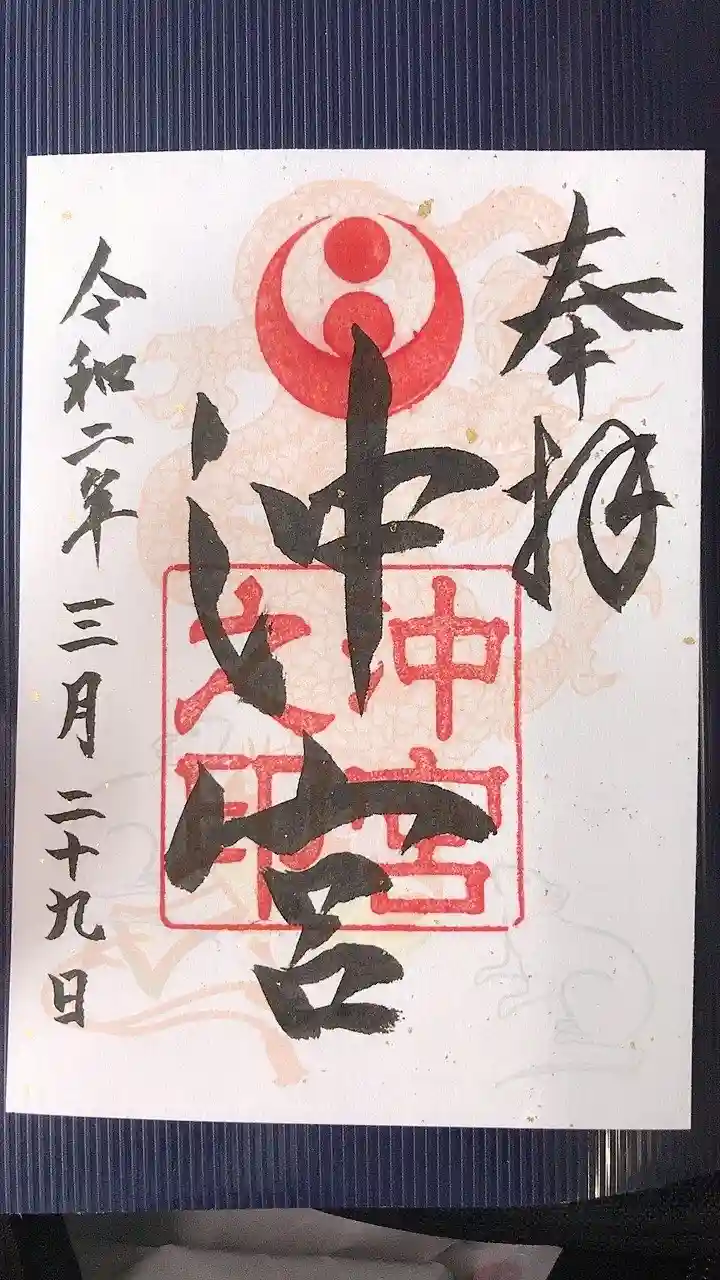 奉拝
沖宮
沖宮
之印
令和二年 三月 二十九日